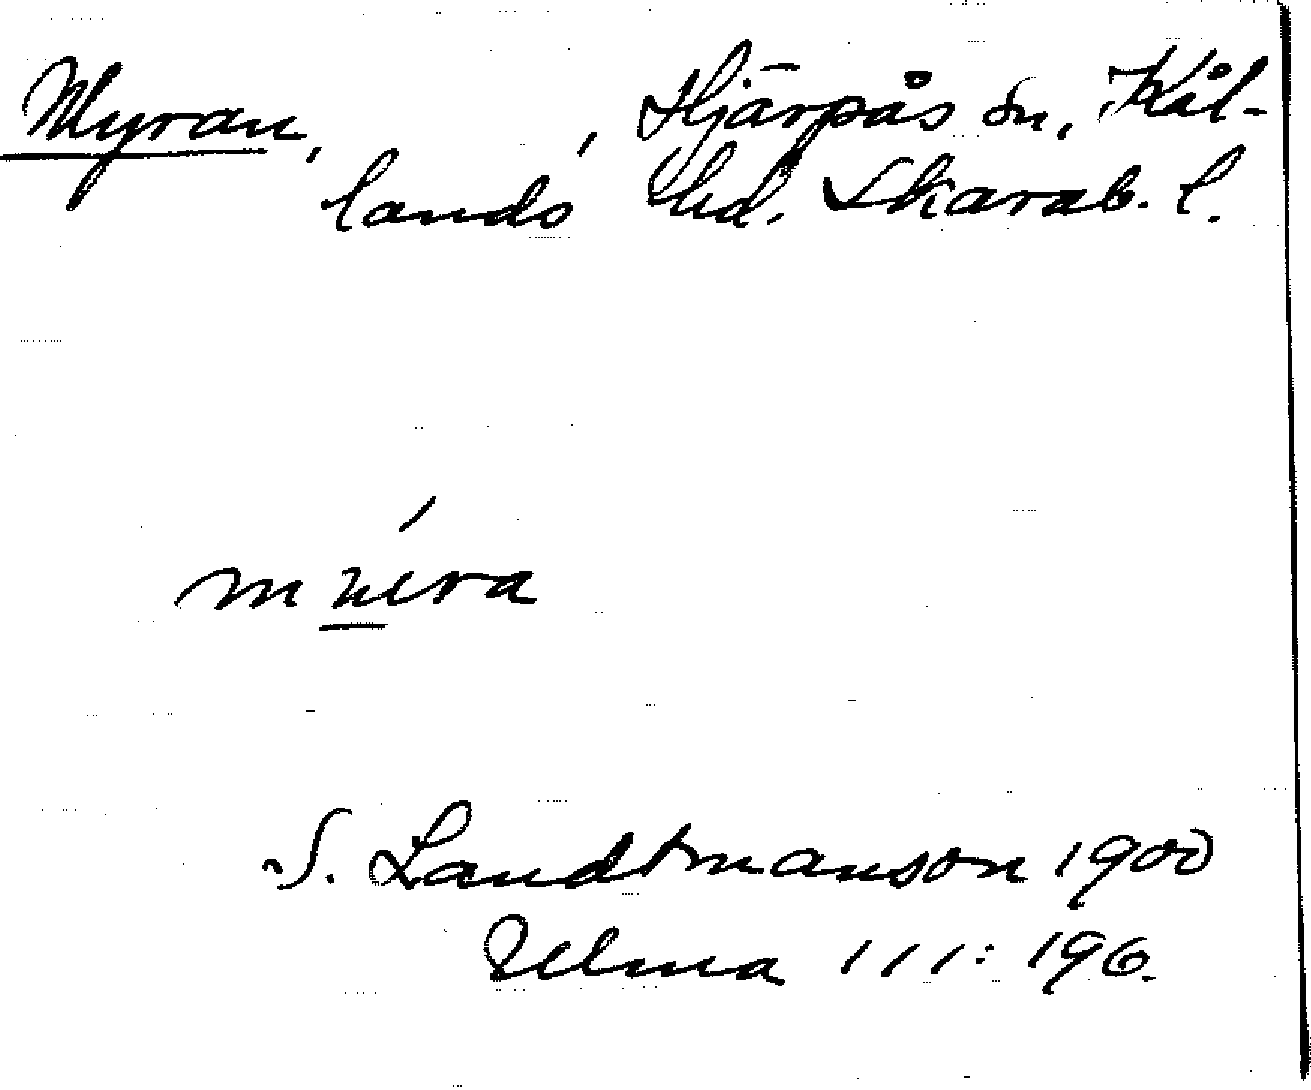 Myran, , Hjärpås sn, Kål-
lands hd. Skarab. l.
S. Landtmanson 1900
Ulma 111: 196.